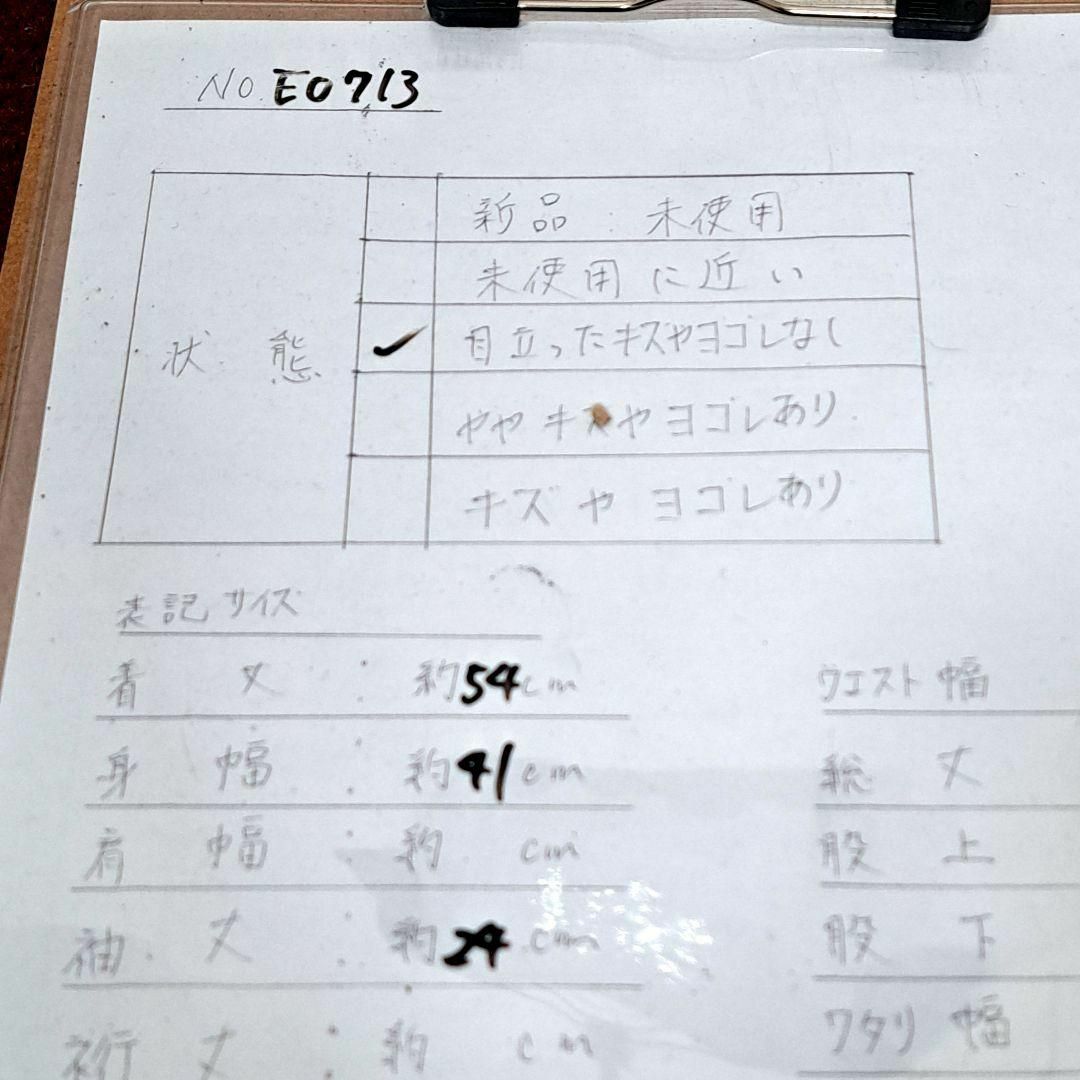 NO. E0713
新品．未使用
未使用に近い
状態 ✓ 目立ったキズやヨゴレなし
ややキズやヨゴレあり
キズやヨゴレあり
表記サイズ
着丈：約54cm ウエスト幅
身幅：約41cm 総丈
肩幅：約 cm 股上
袖丈：約24cm 股下
裄丈：約 cm ワタリ幅